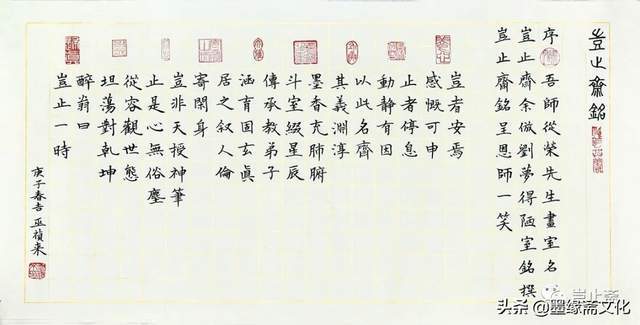 豈止齋銘
序 吾師從榮先生畫室名曰
豈止齋余倣劉夢得陋室銘撰
豈止齋銘呈恩師一笑
豈者安焉
感慨可申
止者停息
動靜有因
以此名齋
其義淵淳
墨香充肺腑
斗室綴星辰
傳承教弟子
涵育固玄真
居之叙人倫
寄閑身
豈非天授神筆
止是心無俗塵
從容觀世態
坦蕩對乾坤
醉翁曰
豈止一時
庚子春吉巫禎來
豈止斋
头条@墨缘斋文化